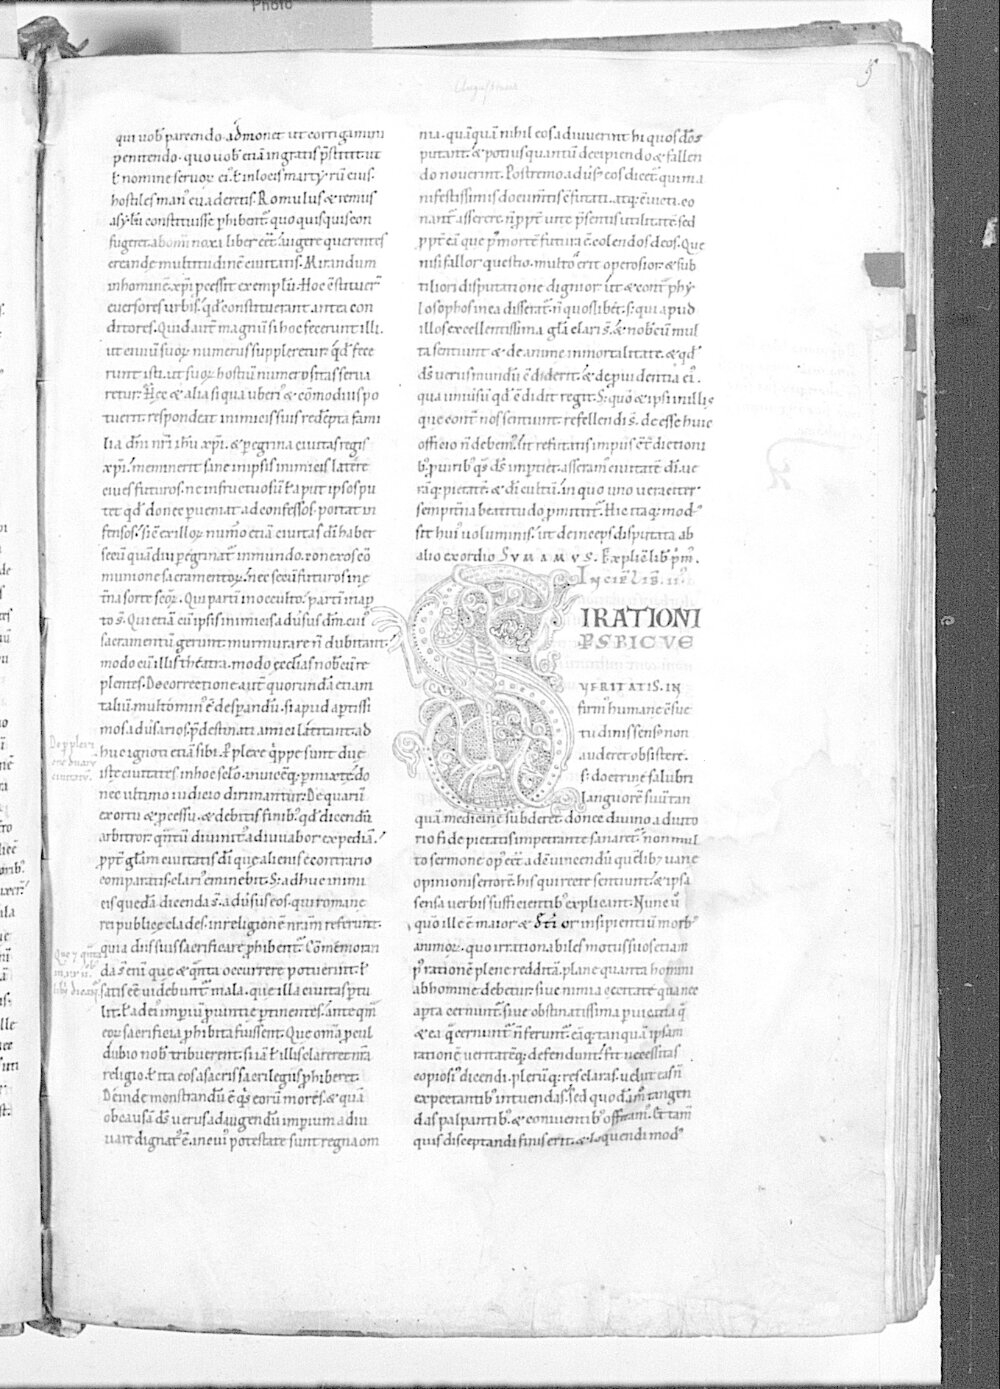 Photo
5
Augustinus
qui uob̄ parcendo. admonet ut corrigamini
penitendo. quo uob̄ etiā ingratis p̄stitit. ut
ł nomine seruoꝝ ei᷒. ł in locis martyrū eius.
hostiles man᷒ euaderetis. Romulus & remus
asylū constituisse ꝑhibent᷑. quo quisquis con
fugeret. ab omi noxa liber eēt. augere querentes
creandę multitudinē ciuitatis. Mirandum
in honorē xp̄i p̄cessit exemplū. Hoc c̄stituer̄
euersores urbis. qd̄ constituerant antea con
ditores. Quid aut̄ magnū si hoc fecerunt illi.
ut ciuiū suoꝝ numerus suppleretur. qd̄ fece
runt isti. ut suoꝝ hostiū numerositas serua
retur. Hęc & alia si qua uberi᷒ & cōmodius po
tuerit. respondeat inimicis suis redēpta fami
lia dn̄i nr̄i ihū xp̄i. & peregrina ciuitas regis
xp̄i. meminerit sane in ipsis inimicis latere
ciues futuros. ne infructuosū ł aput ipsos pu
tet qd̄ donec ꝑueniat ad confessos. portat in
fensos. sic̄ ex illoꝝ num̄o etiā ciuitas dī habet
secū quādiu ꝑegrinat᷑ in mundo. conexos cō
munione sacramentoꝝ. nec secū futuros in ę
t̄na sorte sc̄oꝝ. Qui partī in occulto. partī in aꝑ
to s̄. Qui etiā cū ipsis inimicis adūsus dm̄. cui᷒
sacramentū gerunt. murmurare n̄ dubitant.
modo cū illis theatra. modo ęcclias nobcū re
plentes. De correctione aut̄ quorundā etiam
taliū. multo min᷒ ē desꝑandū. si apud aꝑtissi
mos adūsarios. p̄destinati amici latitant. ad
huc ignoti etiā sibi. Ꝑplexę q̇ppe sunt duę
istę ciuitates in hoc sclo. inuicēq; ꝑmixtę. do
nec ultimo iudicio dirimantur. De quarū
exortu & ꝓcessu. & debitis finib᷒. qd̄ dicendū
arbitror. q̄ntū diuinit᷒ adiuuabor expediā.
ꝓpt̄ głam ciuitatis dī. que alienis ē contrario
comparatis. clari᷒ eminebit. S; adhuc in mi
cis quędā dicenda s̄. adūsus eos. qui romanę
rei publice clades. in religionē nr̄am referunt.
quia diis suis sacrificare ꝓhibent᷑. Cōmemoran
da s̄ eni que & q̄nta occurrere potuerint. ł
satis eē uidebunt᷑ mala. que illa ciuitas ꝑtu
lit. ł ad ei᷒ imꝑiū ꝓuintię ꝑtinentes. ante q̄m
eoꝝ sacrificia ꝓhibita fuissent. Que om̄a ꝓcul
dubio nob̄ tribuerent. si iā ł illis clareret nr̄a
religio. ł ita eos a sacris sacrilegiis ꝓhiberet.
Deinde monstrandū ē q̄s eorū mores. & quā
ob causā ds̄ uerus ad augendū imperium adiu
uare dignat᷒ ē. in cui᷒ potestate sunt regna om
nia. quāquā nihil eos adiuuerint hi quos d̄os
putant. & potius quantū decipiendo & fallen
do nocuerint. Postremo adūs᷒ eos dicet᷑. qui ma
nifestissimis documtis c̄futati. atq; c̄uicti. co
nant᷑ asserere. n̄ ꝓpt̄ uitę p̄sentis utilitatē. sed
ꝓpt̄ eā que p᷒ mortē futura ē. colendos deos. Que
nisi fallor questio. multo erit operosior. & sub
tiliori disputatione dignior. ut & cont̄ phy
losophos in ea disserat᷑. n̄ quoslibet. s; qui apud
illos excellentissima głia clari s̄. & nobcū mul
ta sentiunt. & de animę inmortalitate. & qd̄
ds̄ uerus mundū c̄diderit. & de ꝓuidentia ei᷒.
qua uniūsū qd̄ c̄didit regit. S; qm̄ & ipsi in illis
que cont̄ nos sentiunt refellendi s̄. deesse huic
officio n̄ debem᷒. ut refutatis impiis c̄tdictioni
b᷒. ꝓ uirib᷒ q̄s ds̄ imꝑtiet. asseram᷒ ciuitatē dī. ue
rāq; pietatē. & dī cultū. in quo uno ueraciter
sempit̄na beatitudo ꝓmittit᷑. Hic itaq; mod᷒
sit hui᷒ uoluminis. ut deinceps disputata ab
alio exordio SVMAMVS. Explic̄ lib̄ pm᷒.
INCIP̄ LIB̄. II᷒.
SI RATIONI
PSPICVE
VERITATIS. IN
firm᷒ humane c̄sue
tudinis sensus non
auderet obsistere.
s; doctrinę salubri
languorē suū tan
quā medicinę subderet. donec diuino adiuto
rio fide pietatis impetrante sanaret᷑. non mul
to sermone op᷒ eēt ad c̄uincendū quēlib; uanę
opinionis errorē. his qui recte sentiunt. & ipsa
sensa uerbis sufficientib᷒ explicant. Nunc ū
quō ille ē maior & tetrior insipientiū morb᷒
animoꝝ. quo irrationabiles motus suos etiam
p᷒ rationē plene redditā. plane quanta homini
ab homine debetur. siue nimia cecitate qua nec
aperta cernunt᷑. siue obstinatissima ꝑuicatia q̄
& ea que cernunt᷑ n̄ ferunt᷑. eāq; tanquā ipsam
rationē ueritatēq; defendunt. fit necessitas
copiosi᷒ dicendi. plerūq; res claras. uelut eas n̄
expectantib᷒ intuendas. sed quodāmodo tangen
das palpantib᷒. & conuentib᷒ offeram᷒. Et tam̄
quis disceptandi finis erit. & loquendi mod᷒